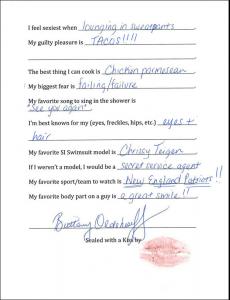 I feel sexiest when lounging in sweatpants
My guilty pleasure is TACOS!!!!
The best thing I can cook is Chicken parmesean
My biggest fear is failing/failure
My favorite song to sing in the shower is
"See you again"
I'm best known for my (eyes, freckles, hips, etc.) eyes +
hair
My favorite SI Swimsuit model is Chrissy Teigen
If I weren't a model, I would be a secret service agent
My favorite sport/team to watch is New England Patriots!!
My favorite body part on a guy is a great smile!!
Brittany
Sealed with a Kiss by